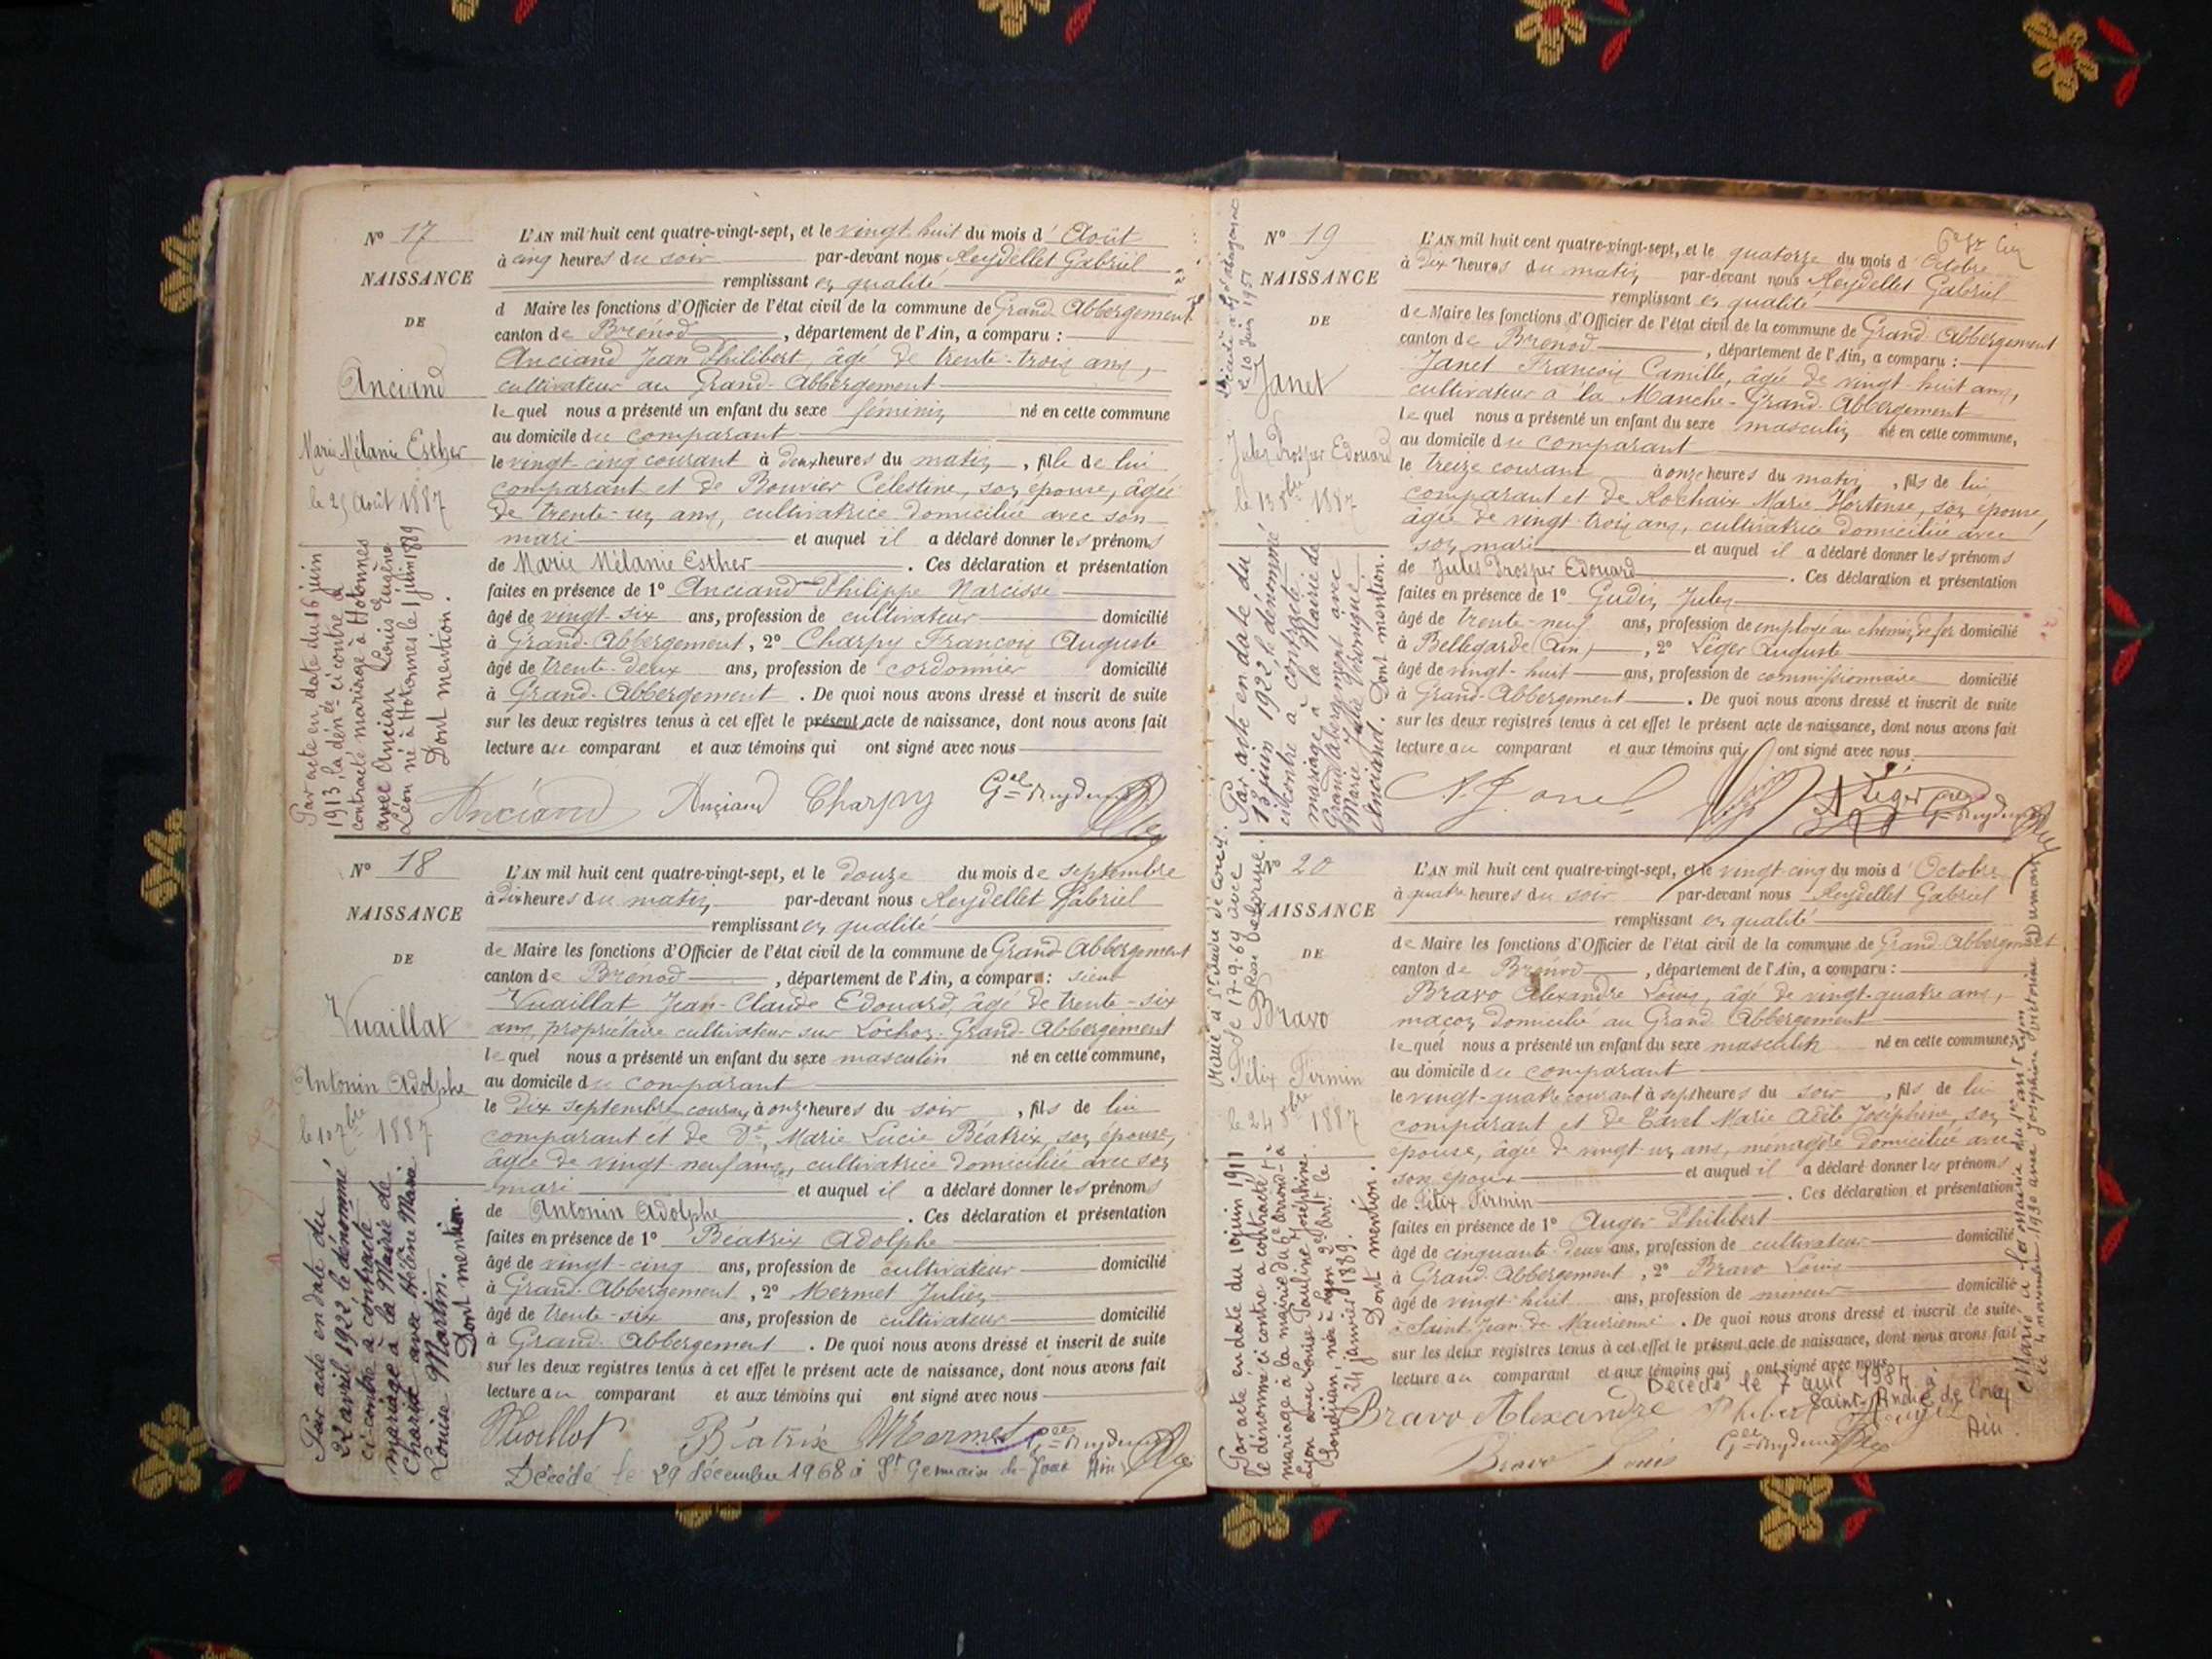 Nº 17
NAISSANCE
DE
Anciand
Marie Mélanie Esther
le 25 Août 1887
Par acte en date du 16 juin
1913, la dén ée ci contre a
contracté mariage à Hotonnes
avec Ancian Louis Eugène
Léon né à Hotonnes le 1 juin 1889
Dont mention.
L'AN mil huit cent quatre-vingt-sept, et le vingt huit du mois d' Août
à cinq heures du soir par-devant nous Reydellet Gabriel
remplissant en qualité
d Maire les fonctions d'Officier de l'état civil de la commune de Grand Abbergement
canton de Brénod, département de l'Ain, a comparu :
Anciand Jean Philibert, âgé de trente-trois ans,
cultivateur au Grand-Abbergement
lequel nous a présenté un enfant du sexe féminin né en cette commune
au domicile du comparant
le vingt-cinq courant à deux heures du matin, fille de lui
comparant et de Bouvier Célestine, son épouse, âgée
de trente-un ans, cultivatrice domiciliée avec son
mari et auquel il a déclaré donner les prénoms
de Marie Mélanie Esther. Ces déclaration et présentation
faites en présence de 1º Anciand Philippe Narcisse
âgé de vingt-six ans, profession de cultivateur domicilié
à Grand-Abbergement, 2º Charpy François Auguste
âgé de trente-deux ans, profession de cordonnier domicilié
à Grand-Abbergement. De quoi nous avons dressé et inscrit de suite
sur les deux registres tenus à cet effet le présent acte de naissance, dont nous avons fait
lecture au comparant et aux témoins qui ont signé avec nous
Anciand Anciand Charpy
Nº 18
NAISSANCE
DE
Vuaillat
Antonin Adolphe
le 10 7bre 1887
Par acte en date du
22 avril 1922, le dénommé
ci-contre a contracté
mariage à la Mairie de
Charix avec Hélène Marie
Louise Martin.
Dont mention.
L'AN mil huit cent quatre-vingt-sept, et le douze du mois de septembre
à dix heures du matin par-devant nous Reydellet Gabriel
remplissant en qualité
de Maire les fonctions d'Officier de l'état civil de la commune de Grand Abbergement
canton de Brénod, département de l'Ain, a comparu : sieur
Vuaillat Jean-Claude Edouard, âgé de trente-six
ans, propriétaire cultivateur sur Lochon Grand-Abbergement
lequel nous a présenté un enfant du sexe masculin né en cette commune,
au domicile du comparant
le dix septembre courant à onze heures du soir, fils de lui
comparant et de De, Marie Lucie Béatrix, son épouse,
âgée de vingt-neuf ans, cultivatrice domiciliée avec son
mari et auquel il a déclaré donner les prénoms
de Antonin Adolphe. Ces déclaration et présentation
faites en présence de 1º Béatrix Adolphe
âgé de vingt-cinq ans, profession de cultivateur domicilié
à Grand-Abbergement, 2º Mermet Julien
âgé de trente-six ans, profession de cultivateur domicilié
à Grand-Abbergement. De quoi nous avons dressé et inscrit de suite
sur les deux registres tenus à cet effet le présent acte de naissance, dont nous avons fait
lecture au comparant et aux témoins qui ont signé avec nous
Vuaillat Béatrix Mermet
Décédé le 29 décembre 1968 à St Germain de Joux Ain
Nº 19
NAISSANCE
DE
Janet
Jules Prosper Edouard
le 13 8bre 1887
le 10 Juin 1951
Par acte en date du
13 juin 1922, le dénommé
ci-contre a contracté
mariage à la Mairie de
Grand Abergement avec
Marie Julie Véronique
Anciand. Dont mention.
L'AN mil huit cent quatre-vingt-sept, et le quatorze du mois d' Octobre
à dix heures du matin par-devant nous Reydellet Gabriel
remplissant en qualité
de Maire les fonctions d'Officier de l'état civil de la commune de Grand Abbergement
canton de Brénod, département de l'Ain, a comparu :
Janet François Camille, âgé de vingt-huit ans,
cultivateur à la Manche-Grand-Abbergement
lequel nous a présenté un enfant du sexe masculin né en cette commune,
au domicile du comparant
le treize courant à onze heures du matin, fils de lui
comparant et de Rochaix Marie Hortense, son épouse,
âgée de vingt-trois ans, cultivatrice domiciliée avec
son mari et auquel il a déclaré donner les prénoms
de Jules Prosper Edouard. Ces déclaration et présentation
faites en présence de 1º Gudin Jules
âgé de trente-neuf ans, profession de employé au chemin de fer domicilié
à Bellegarde (Ain), 2º Léger Auguste
âgé de vingt-huit ans, profession de commissionnaire domicilié
à Grand-Abbergement. De quoi nous avons dressé et inscrit de suite
sur les deux registres tenus à cet effet le présent acte de naissance, dont nous avons fait
lecture au comparant et aux témoins qui ont signé avec nous
Léger
20
NAISSANCE
DE
Bravo
Félix Firmin
le 24 8bre 1887
le 17-9-64 avec
Par acte en date du 10 juin 1911
le dénommé ci contre a contracté
mariage à la mairie du 6e arrond t à
Lyon avec Louise Pauline Joséphine
née à Lyon 2e arrt le
24 janvier 1889.
Dont mention.
L'AN mil huit cent quatre-vingt-sept, et le vingt-cinq du mois d' Octobre
à quatre heures du soir par-devant nous Reydellet Gabriel
remplissant en qualité
de Maire les fonctions d'Officier de l'état civil de la commune de Grand Abbergement
canton de Brénod, département de l'Ain, a comparu :
Bravo Alexandre Louis, âgé de vingt-quatre ans,
maçon domicilié au Grand Abbergement
lequel nous a présenté un enfant du sexe masculin né en cette commune,
au domicile du comparant
le vingt-quatre courant à sept heures du soir, fils de lui
comparant et de Cavet Marie Adèle Joséphine, son
épouse, âgée de vingt-un ans, ménagère domiciliée avec
son époux et auquel il a déclaré donner les prénoms
de Félix Firmin. Ces déclaration et présentation
faites en présence de 1º Auger Philibert
âgé de cinquante-deux ans, profession de cultivateur domicilié
à Grand-Abbergement, 2º Bravo Louis
âgé de vingt-huit ans, profession de mineur domicilié
à Saint Jean de Maurienne. De quoi nous avons dressé et inscrit de suite
sur les deux registres tenus à cet effet le présent acte de naissance, dont nous avons fait
lecture au comparant et aux témoins qui ont signé avec nous
Bravo Alexandre
Bravo Louis
Saint-André de Corcy
Ain.